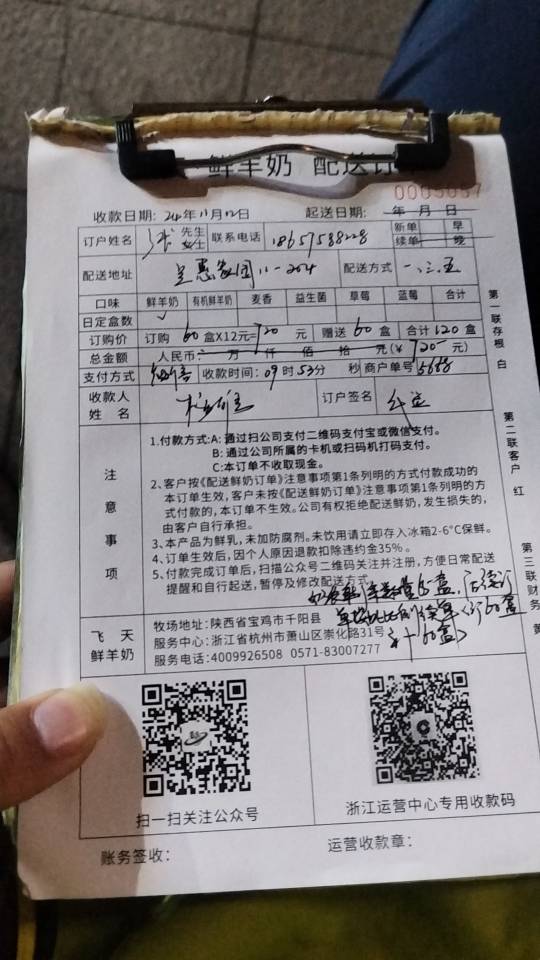 鲜羊奶 配送订单
0005057
收款日期: 24年11月12日 起送日期: 年 月 日
订户姓名 先生 女士 联系电话 18657588228 新单 早 续单 晚
配送地址 11-204 配送方式 一、三、五
口味 鲜羊奶 有机鲜羊奶 麦香 益生菌 草莓 蓝莓 合计
日定盒数 ✓
订购价 订购 60 盒X12元=720 元 赠送 60 盒 合计 120 盒
总金额 人民币: 万 仟 佰 拾 元(¥ 720 元)
支付方式 微信 收款时间: 09 时 53分 秒 商户单号 5688
收款人姓名 订户签名
注意事项
1.付款方式:A: 通过扫公司支付二维码支付宝或微信支付。
B: 通过公司所属的卡机或扫码机打码支付。
C:本订单不收取现金。
2、客户按《配送鲜奶订单》注意事项第1条列明的方式付款成功的
本订单生效,客户未按《配送鲜奶订单》注意事项第1条列明的方
式付款的,本订单不生效。公司有权拒绝配送鲜奶,发生损失的,
由客户自行承担。
3、本产品为鲜乳,未加防腐剂。未饮用请立即存入冰箱2-6°C保鲜。
4、订单生效后,因个人原因退款扣除违约金35%。
5、付款完成订单后,扫描公众号二维码关注并注册,方便日常配送
提醒和自行起送,暂停及修改配送方式。
飞天鲜羊奶
牧场地址:陕西省宝鸡市千阳县
服务中心:浙江省杭州市萧山区崇化路31号
服务电话:4009926508 0571-83007277
扫一扫关注公众号
浙江运营中心专用收款码
账务签收:
运营收款章:
第一联存根 白
第二联客户 红
第三联财务 黄